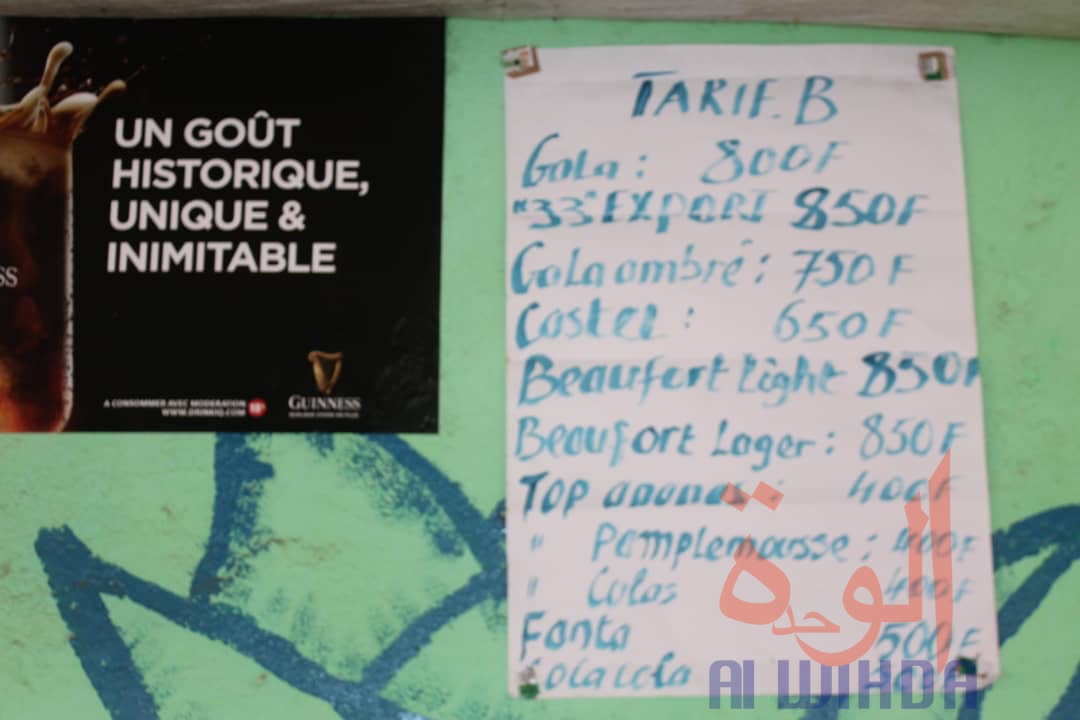 UN GOÛT
HISTORIQUE,
UNIQUE &
INIMITABLE
SS
A CONSOMMER AVEC MODERATION
WWW.DRINKIQ.COM 18+
GUINNESS
TARIF.B
Gala : 800F
"33" EXPORT 850F
Gala ambré : 750 F
Castel : 650F
Beaufort Light 850F
Beaufort Lager : 850F
TOP ananas : 400F
" Pamplemousse : 400F
" Colas 400F
Fanta 500F
Cocacola
الوحدة
Al WIHDA